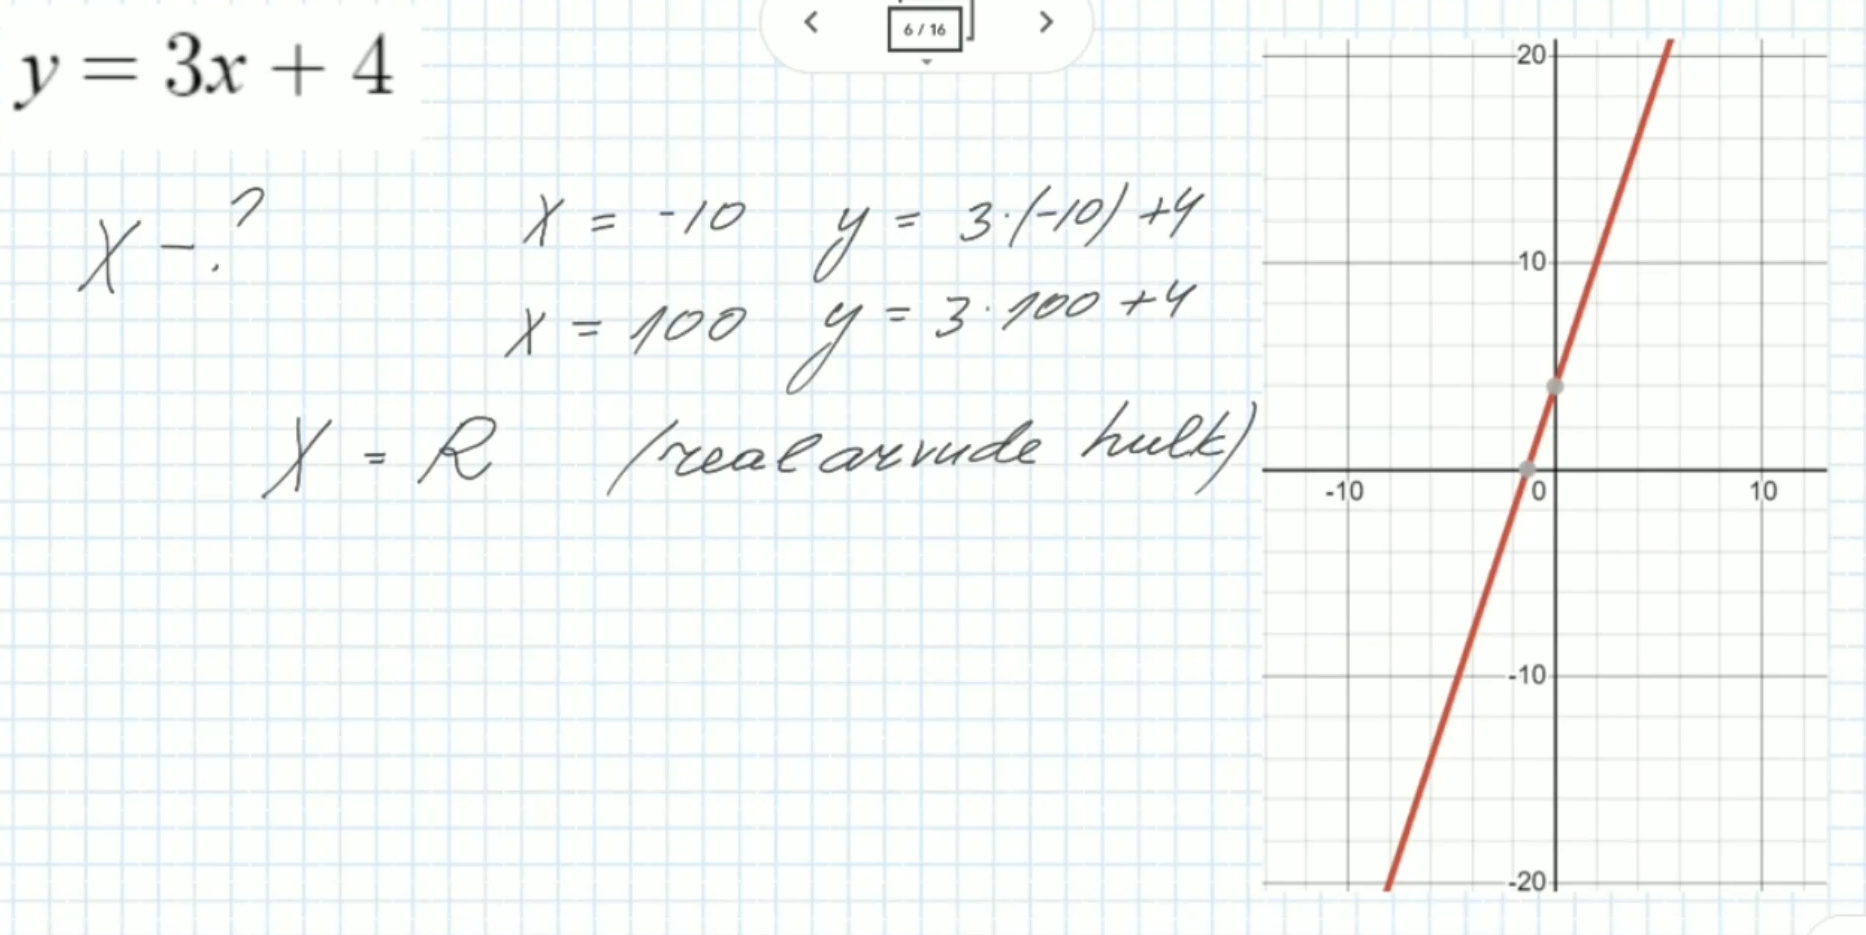 6 / 16
y = 3x + 4
X - ?
X = -10 y = 3·(-10) +4
X = 100 y = 3·100 +4
X = R (realarvude hulk)
20
10
-10 0 10
-10
-20